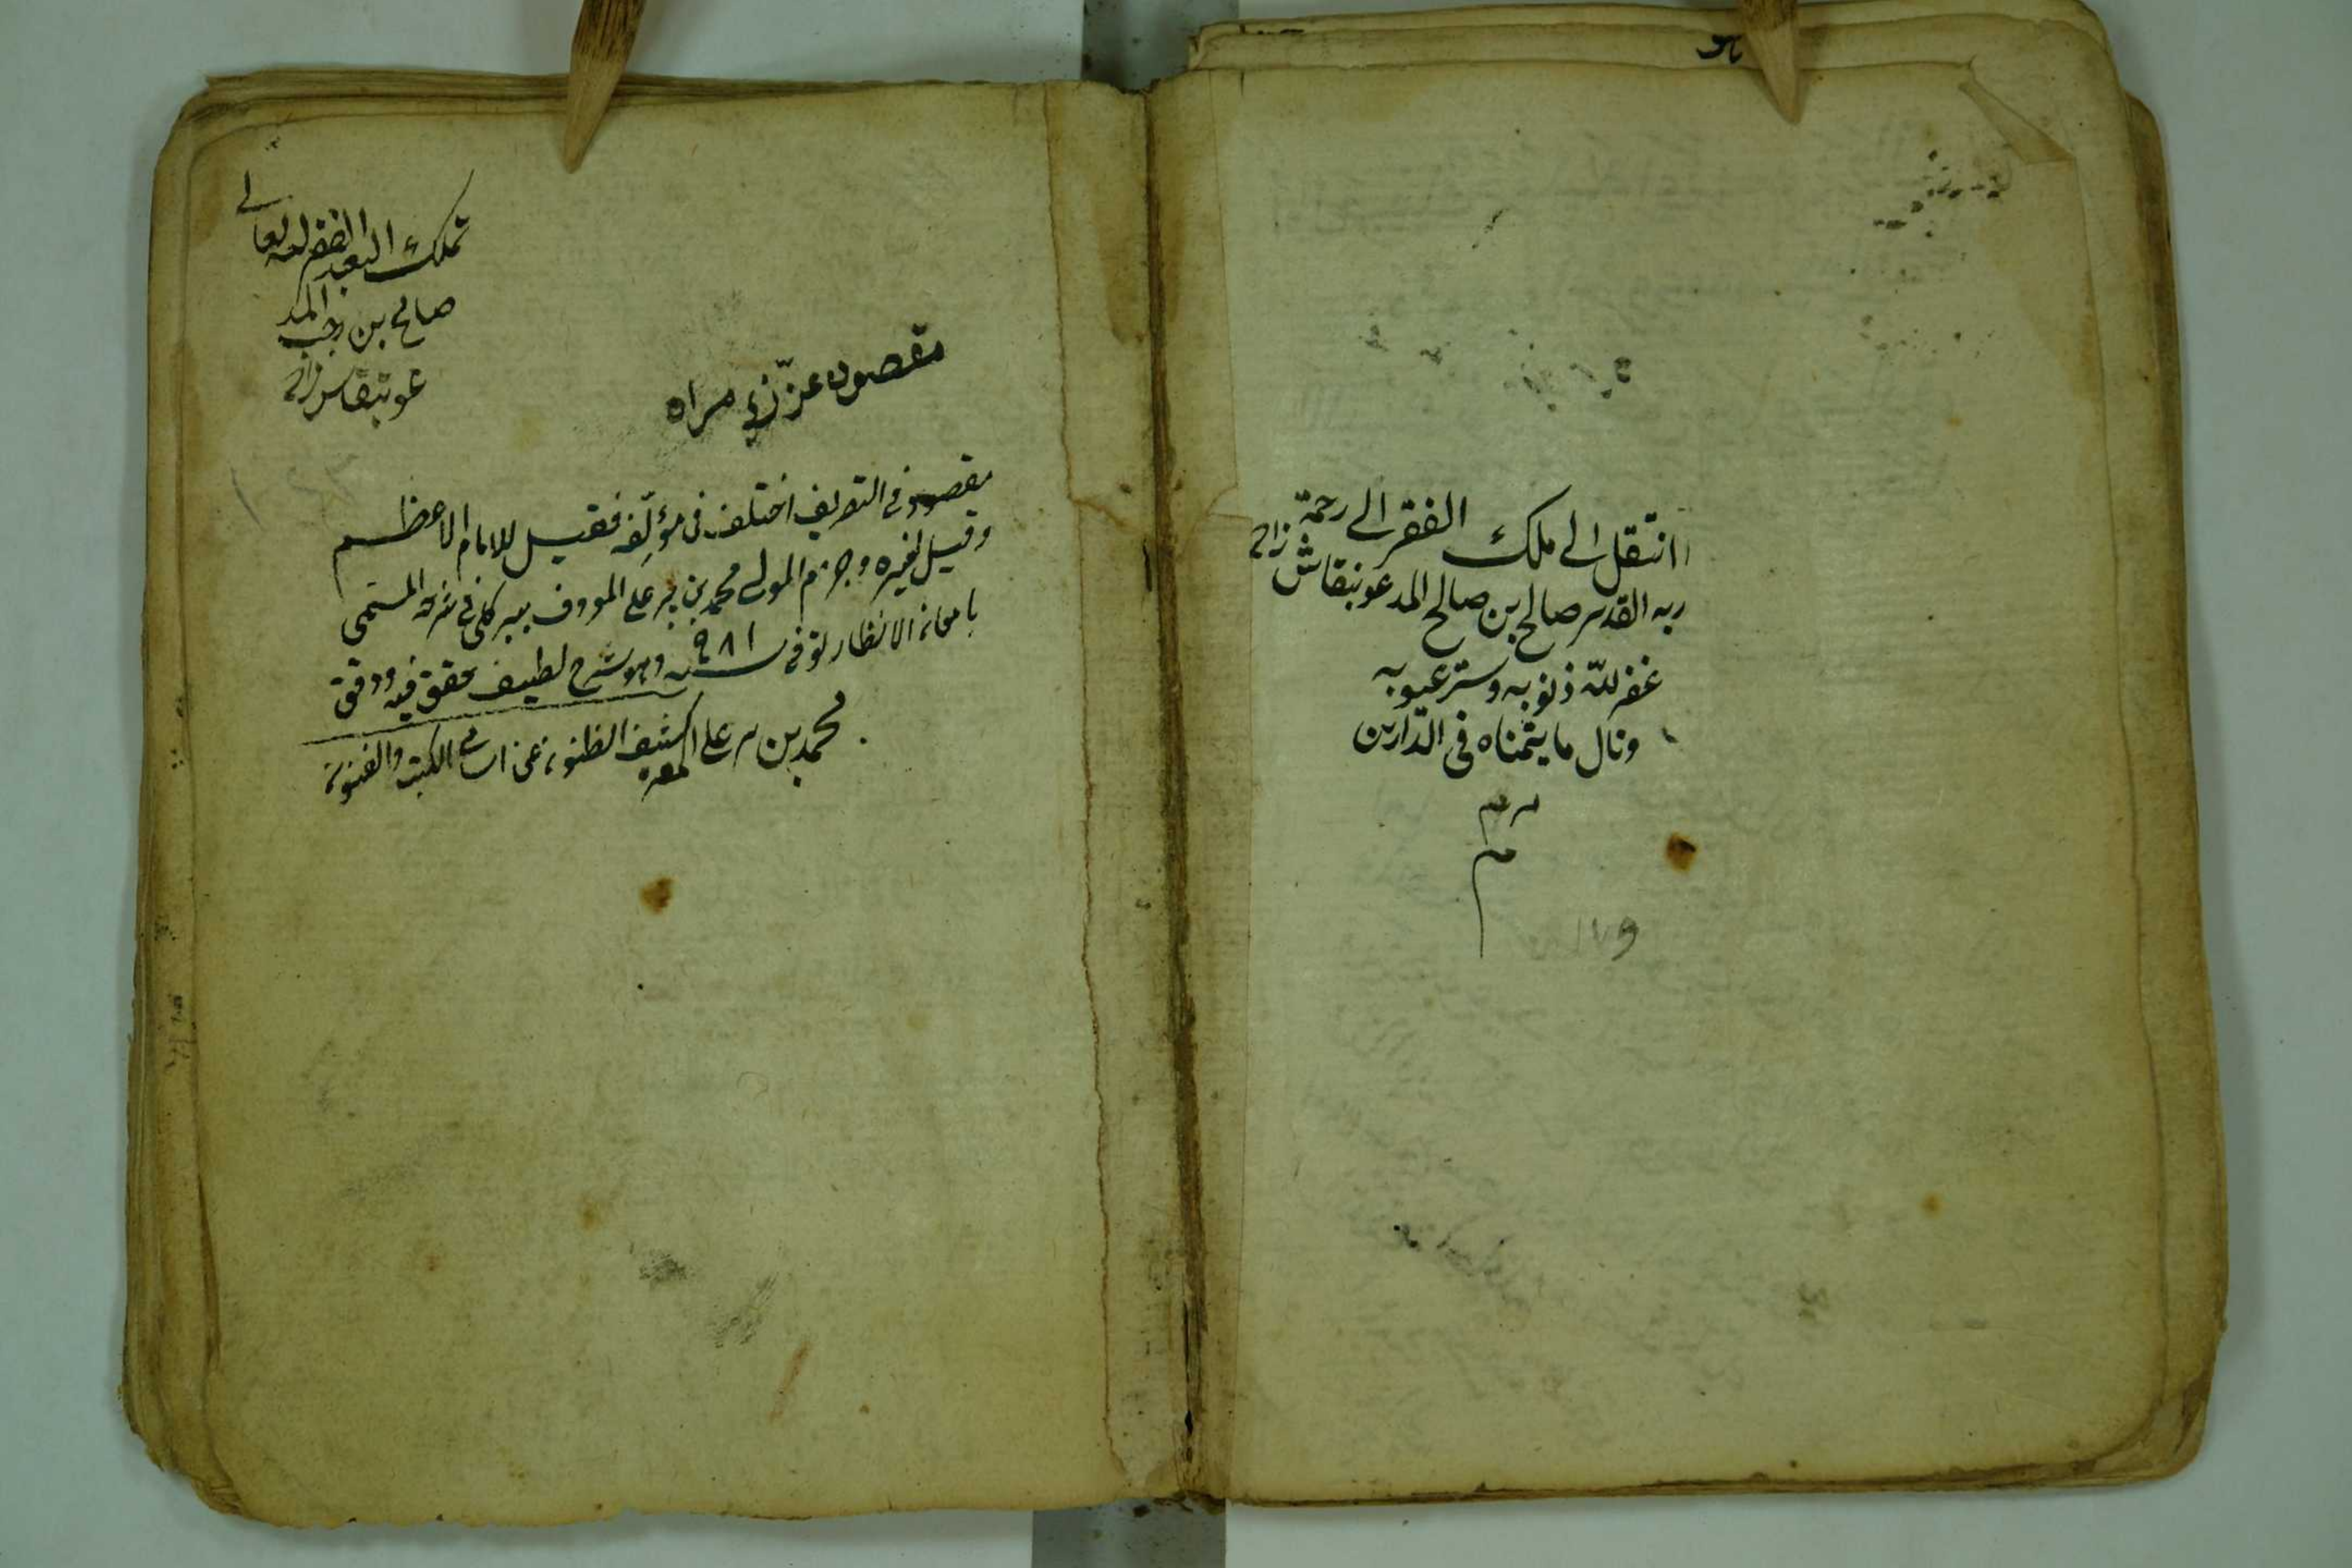 انتقل الى ملك الفقر الى رحمة
ربه القدير صالح بن صالح المدعو بنقاش زاده
غفر الله ذنوبه وستر عيوبه
ونال ما يتمناه فى الدارين
م م
م
١٧٩
تملك العبد الفقير لله تعالى
صالح بن رجب المد
عو بنقاش زاده
مقصود عزّى مراه
مقصود فى التصريف اختلف فى مؤلّفه فقيل للامام الاعظم
وقيل لغيره وجزم المولى محمد بن پير على المعروف ببيركلى فى شرحه المسمى
بامعان الانظار توفى سنة ٩٨١ وهو شرح لطيف حقق فيه ودقق
محمد بن پير على كشف الظنون عن اسامى الكتب والفنون